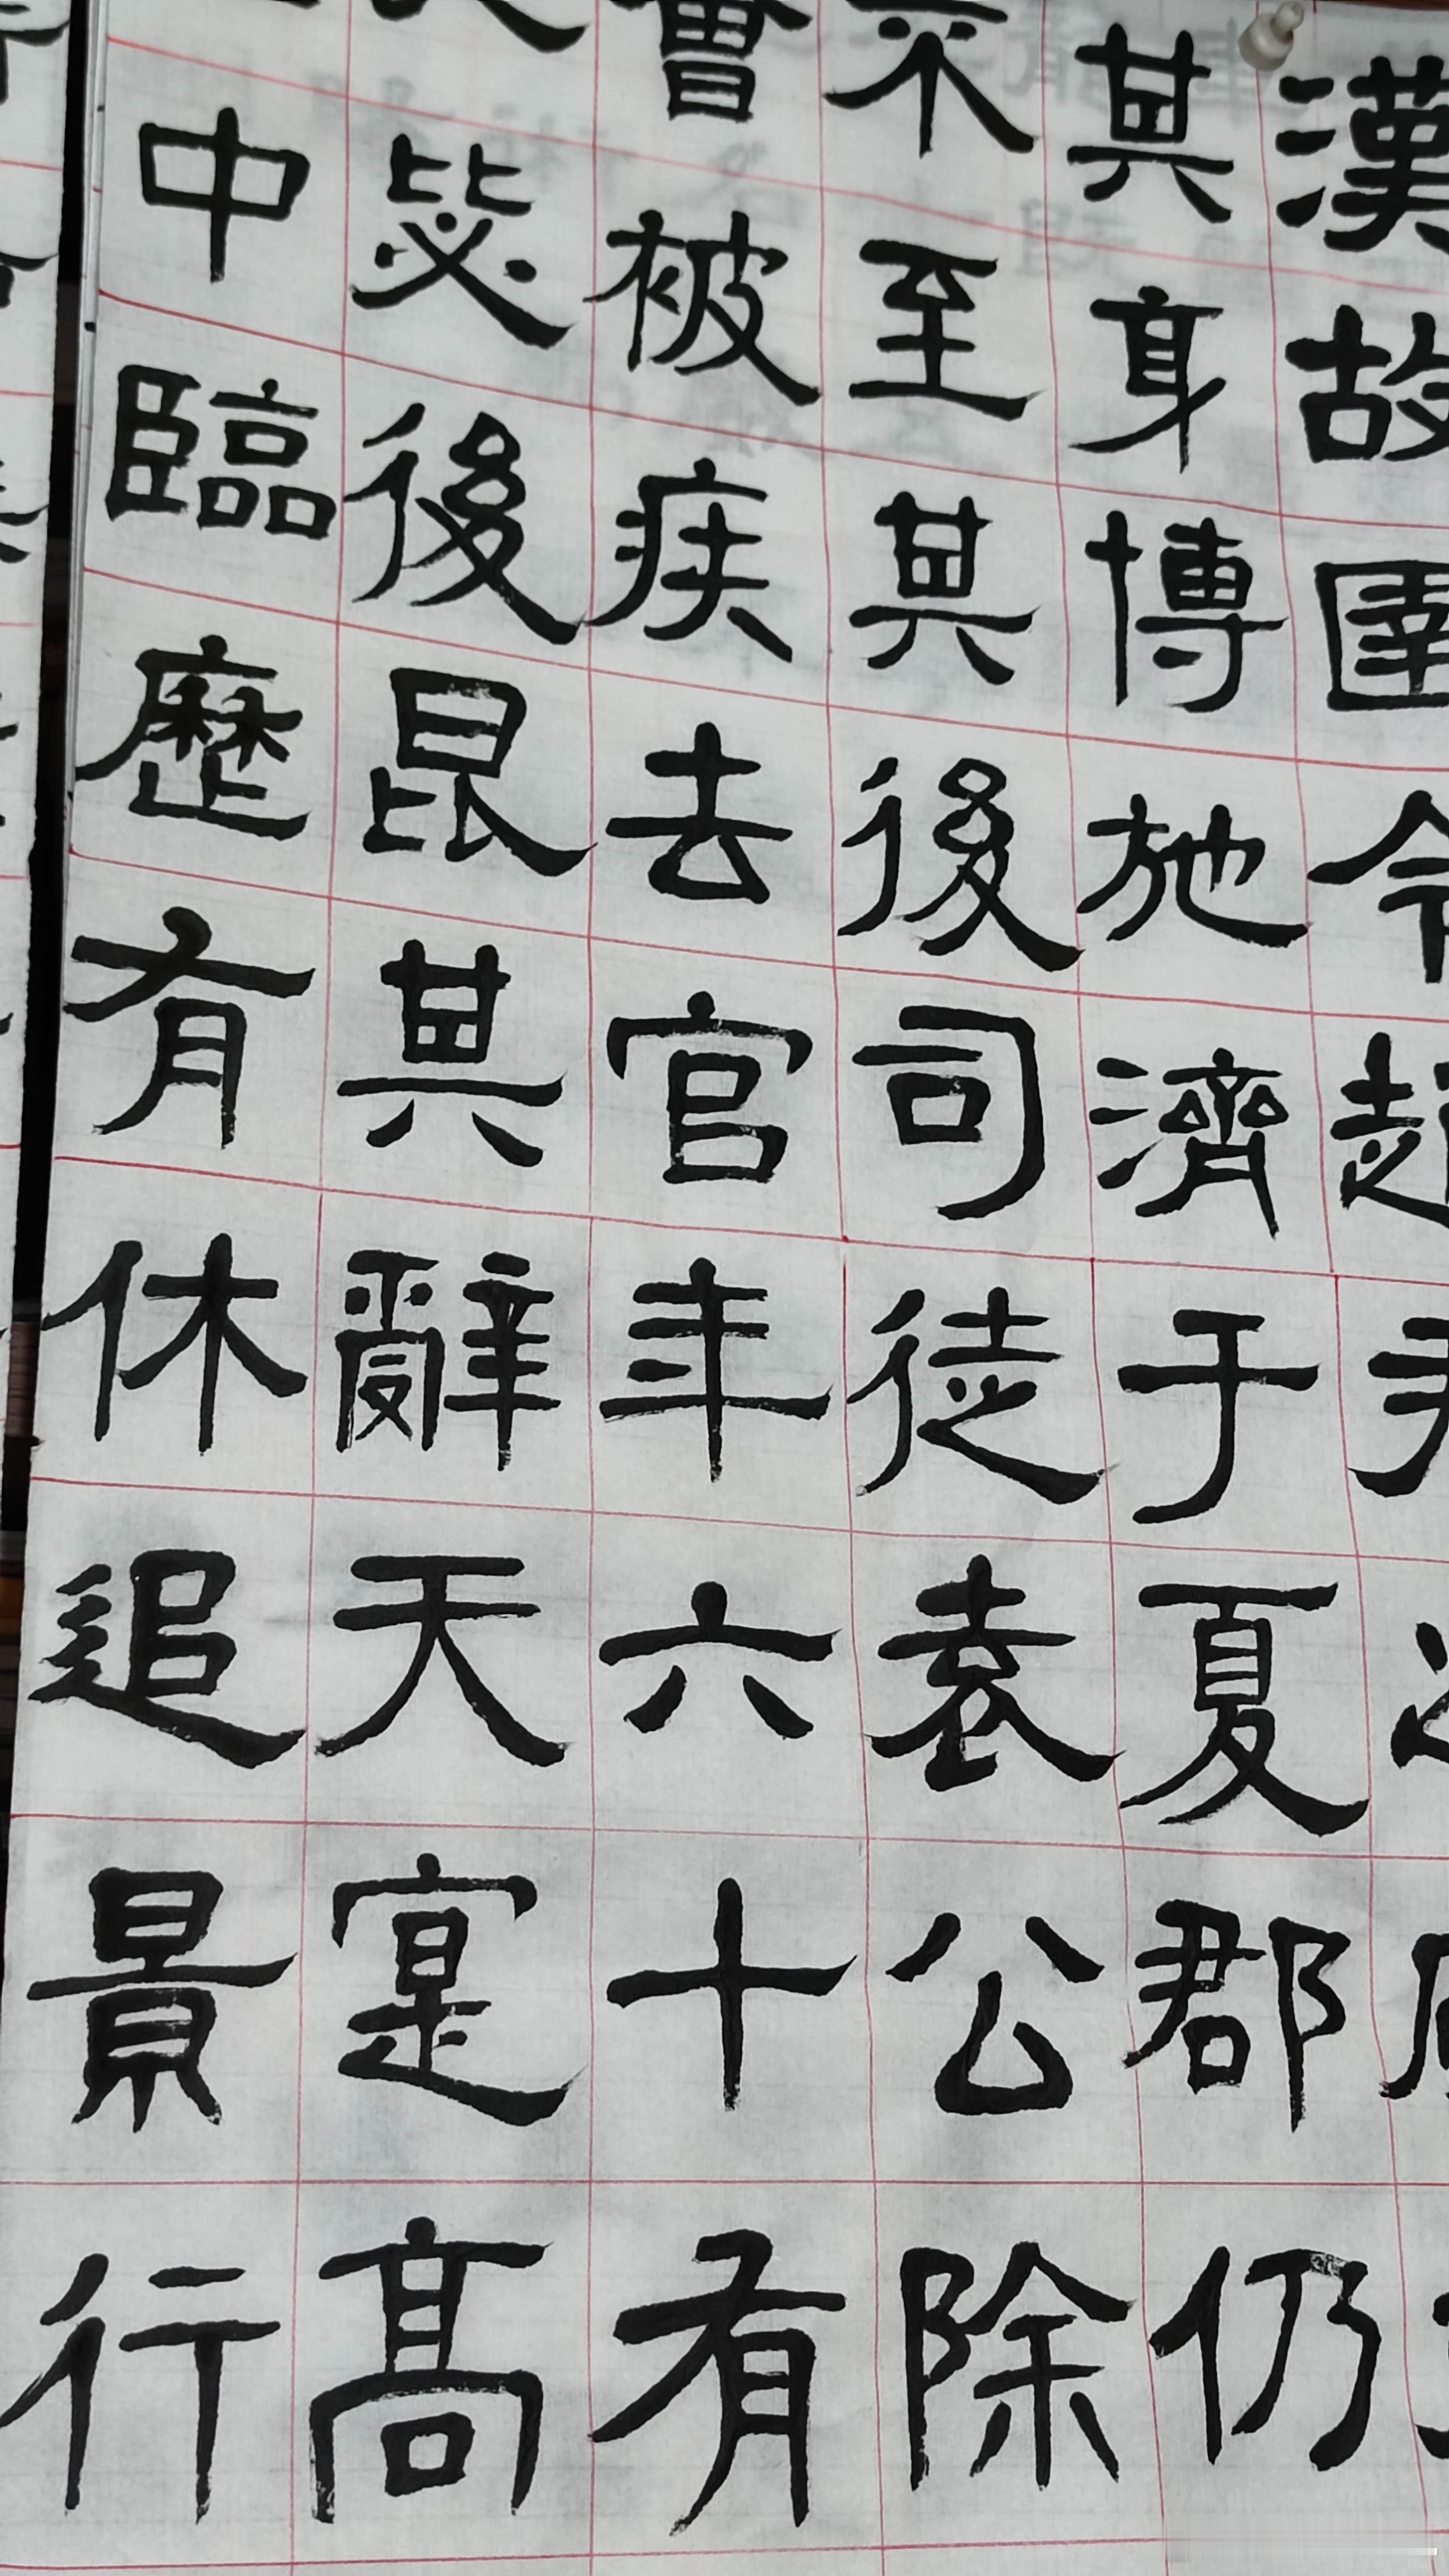 漢故圉令趙
其身博施濟于夏郡仍
至其後司徒袁公除
被疾去官年六十有
毖後昆其辭天寔高
中臨歷有休追景行